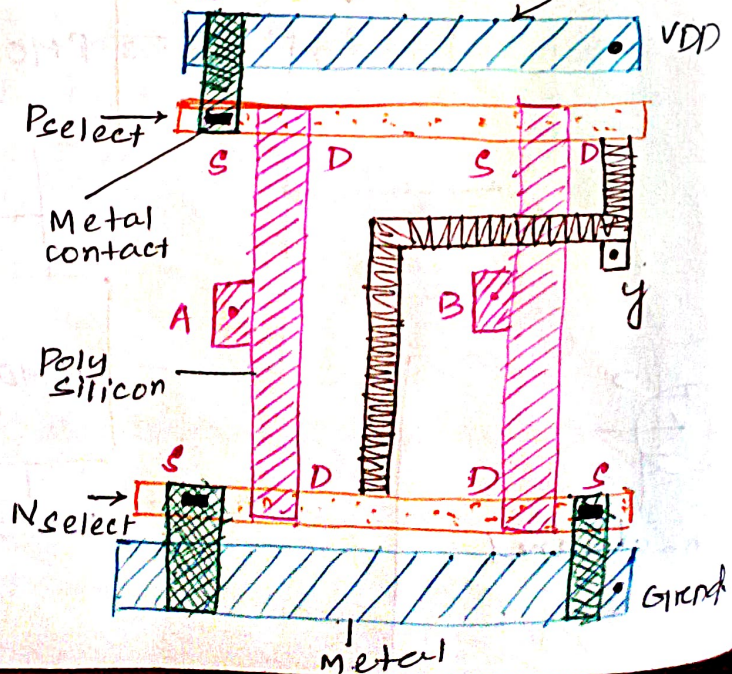 VDD
Pselect
S
D
S
D
Metal
contact
A
B
y
Poly
silicon
S
D
D
S
Nselect
Grnd
Metal